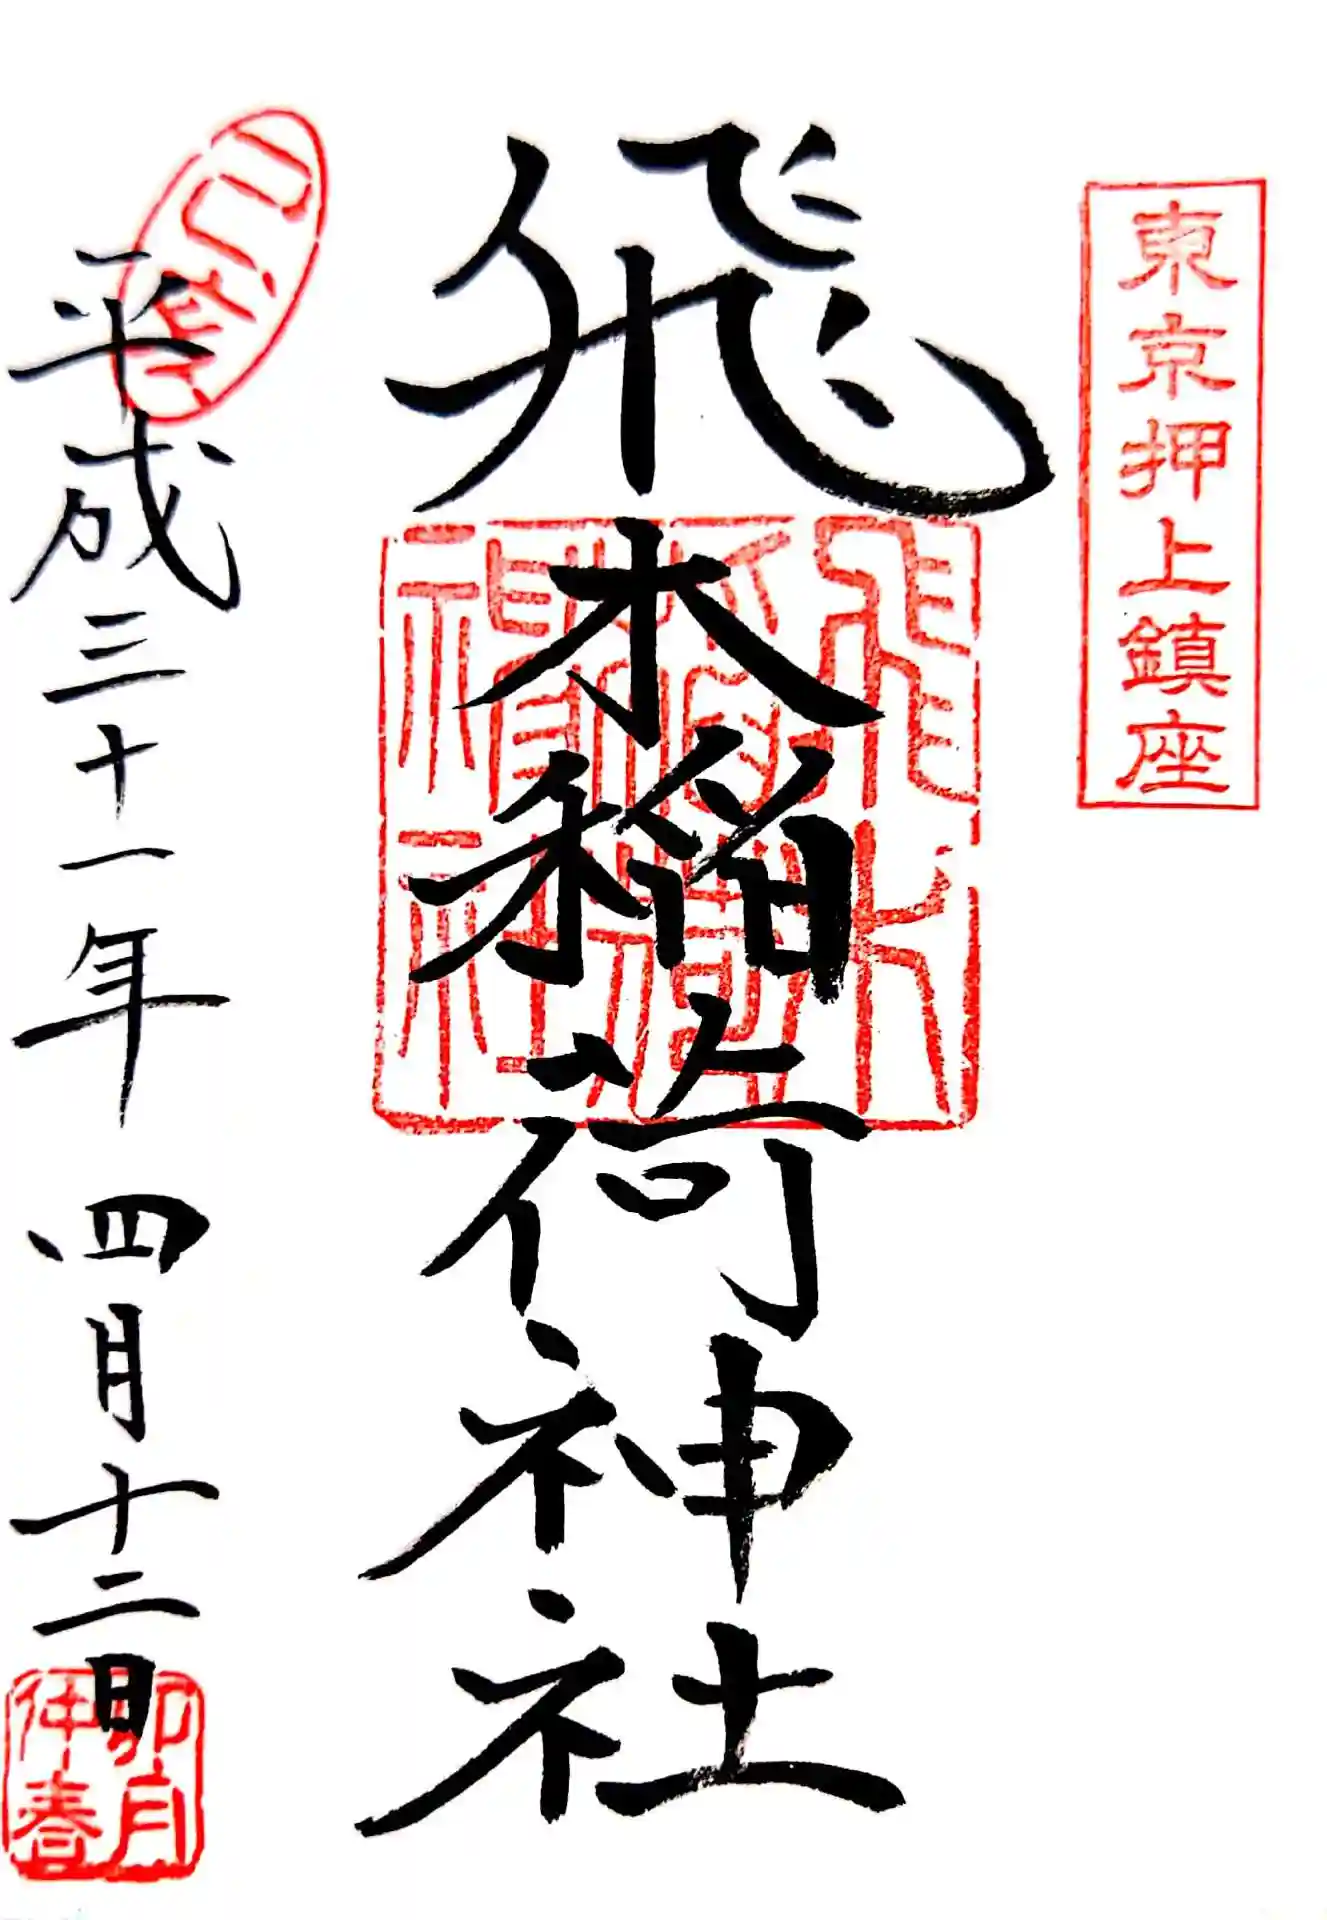 東京押上鎮座
飛木稲荷神社
飛木稲荷神社
平成三十一年 四月十二日
己巻
卯月
仲春